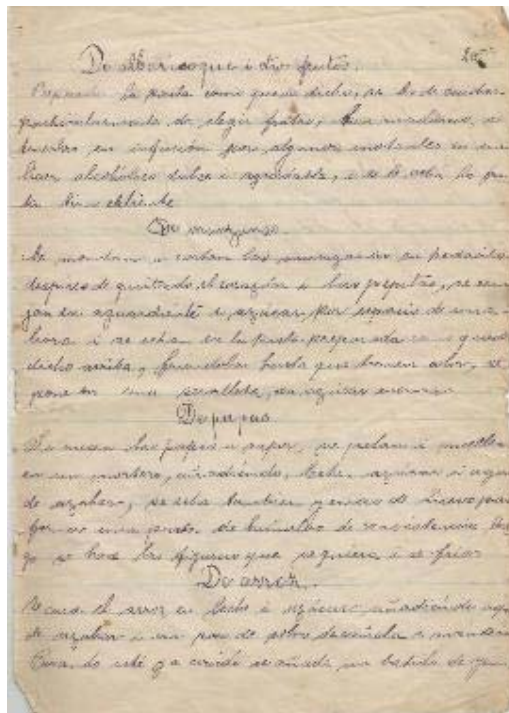 De albaricoque i otro frutos.
Preparada la pasta como queda dicho, se ha de cuidar
particularmente de elegir frutas, bien maduras, i
tenerlas en infusión por algunos instantes en un
licor alcohólico dulce i agradable, i se le echa la pas
ta bien caliente
De manzanas.
Se mondan i cortan las manzanas en pedacitos
después de quitado el corazón i las pepitas, se
jan en aguardiente i azúcar, por espacio de una
hora i se echan en la pasta preparada como queda
dicho arriba, para dorar hasta que tomen color, se
pone en una servilleta, en azúcar
De papas
Se cuecen las papas a vapor, se pelan i muelen
en un mortero, añadiendo, leche, azúcar i agua
de azahar, se echa tambien yemas de huevo para
formar una pasta de buñuelos de consistencia lue
go se hace las figuras que se quiera i se frien
De arroz.
Se cuece el arroz en leche i azúcar añadiendo agua
de azahar i un poco de polvo de canela
Cuando esté ya cocido se añade un batido de yem